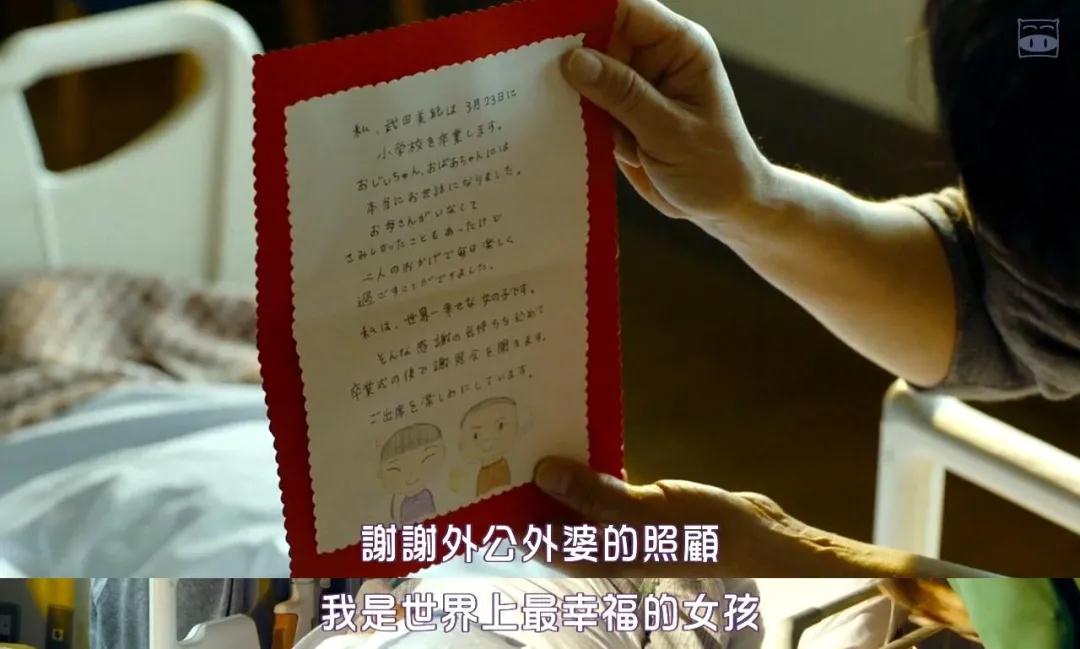 私、武田美紀は3月23日に
小学校を卒業します。
おじいちゃん、おばあちゃんには
本当にお世話になりました。
お母さんがいなくて
さみしかったこともあったけど
二人のおかげで毎日楽しく
過ごすことができました。
私は、世界一幸せな女の子です。
そんな感謝の気持ちを込めて
卒業式の後で謝恩会を開きます。
ご出席を楽しみにしています。
謝謝外公外婆的照顧
我是世界上最幸福的女孩